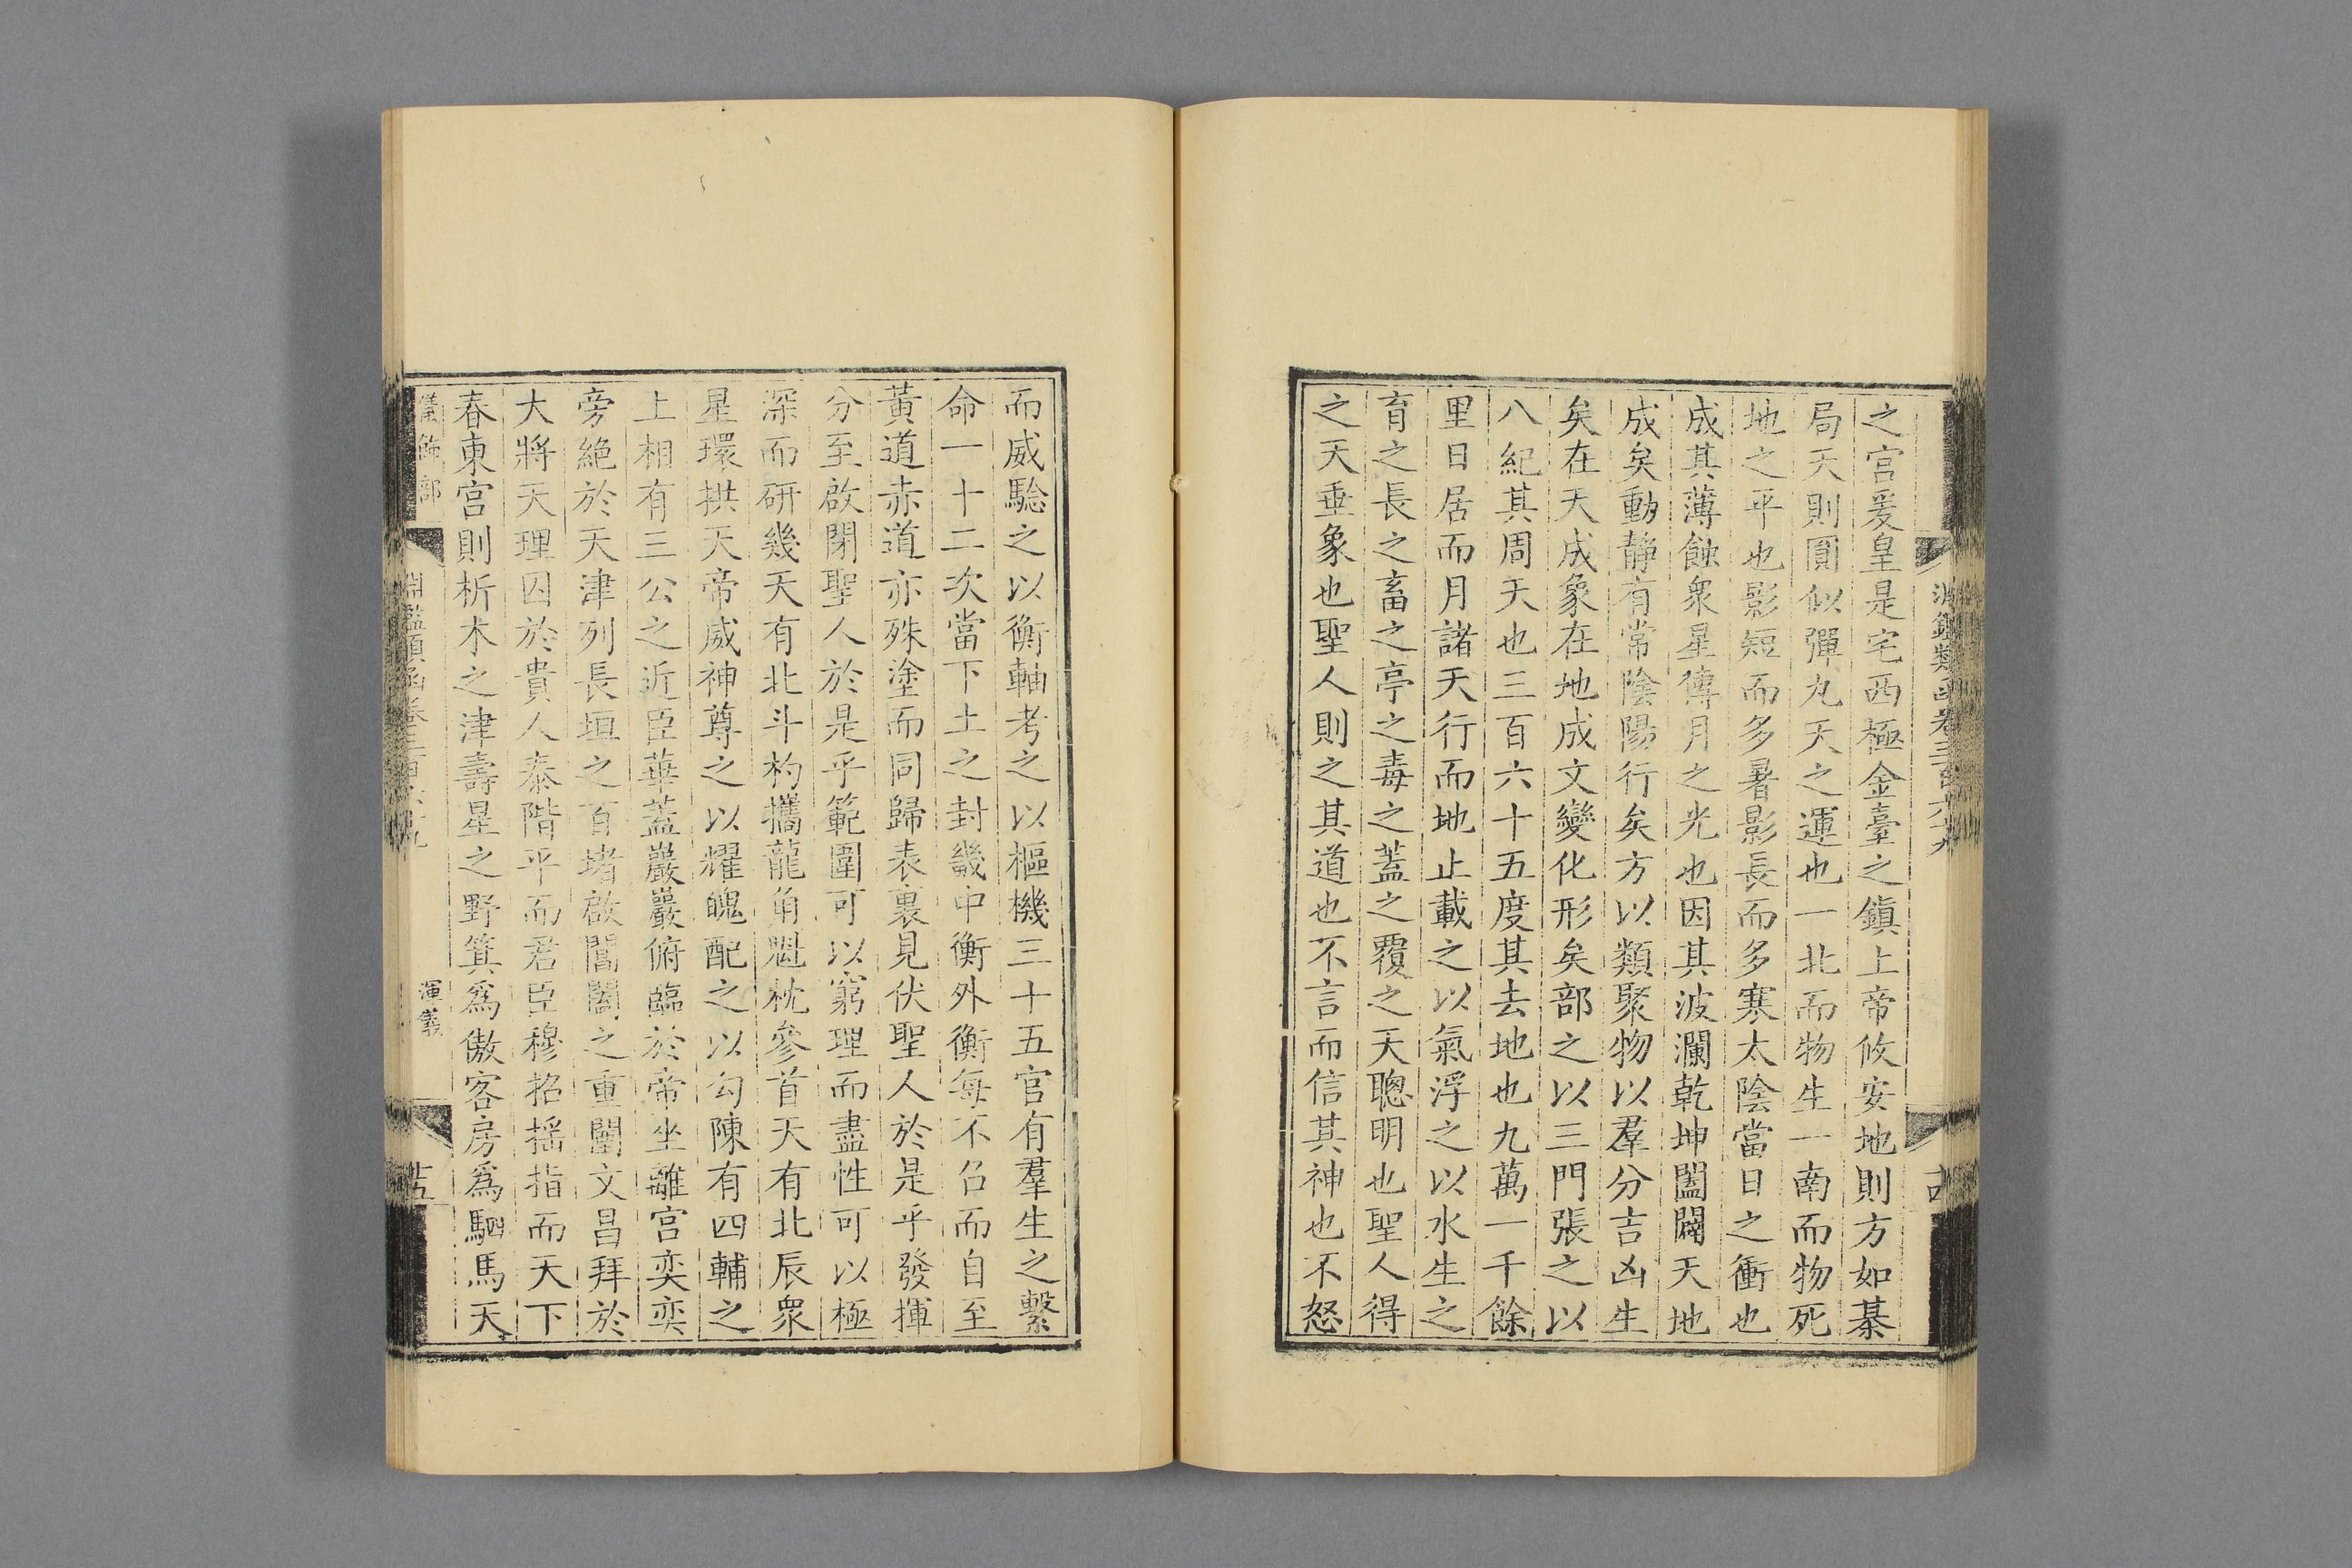 淵鑑類函卷三百六十九
之宮爰皇是宅西極金臺之鎮上帝攸安地則方如棊
局天則圓似彈丸天之運也一北而物生一南而物死
地之平也影短而多暑影長而多寒太陰當日之衝也
成其薄蝕衆星傳月之光也因其波瀾乾坤闔闢天地
成矣動靜有常陰陽行矣方以類聚物以羣分吉凶生
矣在天成象在地成文變化形矣部之以三門張之以
八紀其周天也三百六十五度其去地也九萬一千餘
里日居而月諸天行而地止載之以氣浮之以水生之
育之長之畜之亭之毒之蓋之覆之天聰明也聖人得
之天垂象也聖人則之其道也不言而信其神也不怒
而威騐之以衡軸考之以樞機三十五官有羣生之繫
命一十二次當下土之封畿中衡外衡每不召而自至
黃道赤道亦殊塗而同歸表裏見伏聖人於是乎發揮
分至啟閉聖人於是乎範圍可以窮理而盡性可以極
深而研幾天有北斗杓攜龍角魁枕參首天有北辰衆
星環拱天帝威神尊之以耀魄配之以勾陳有四輔之
上相有三公之近臣華蓋巖巖俯臨於帝坐離宮奕奕
旁絶於天津列長垣之百堵啟閶闔之重闉文昌拜於
大將天理囚於貴人泰階平而君臣穆招搖指而天下
春東宮則析木之津壽星之野箕爲傲客房爲駟馬天
儀飾部
淵鑑類函卷三百六十九
渾儀